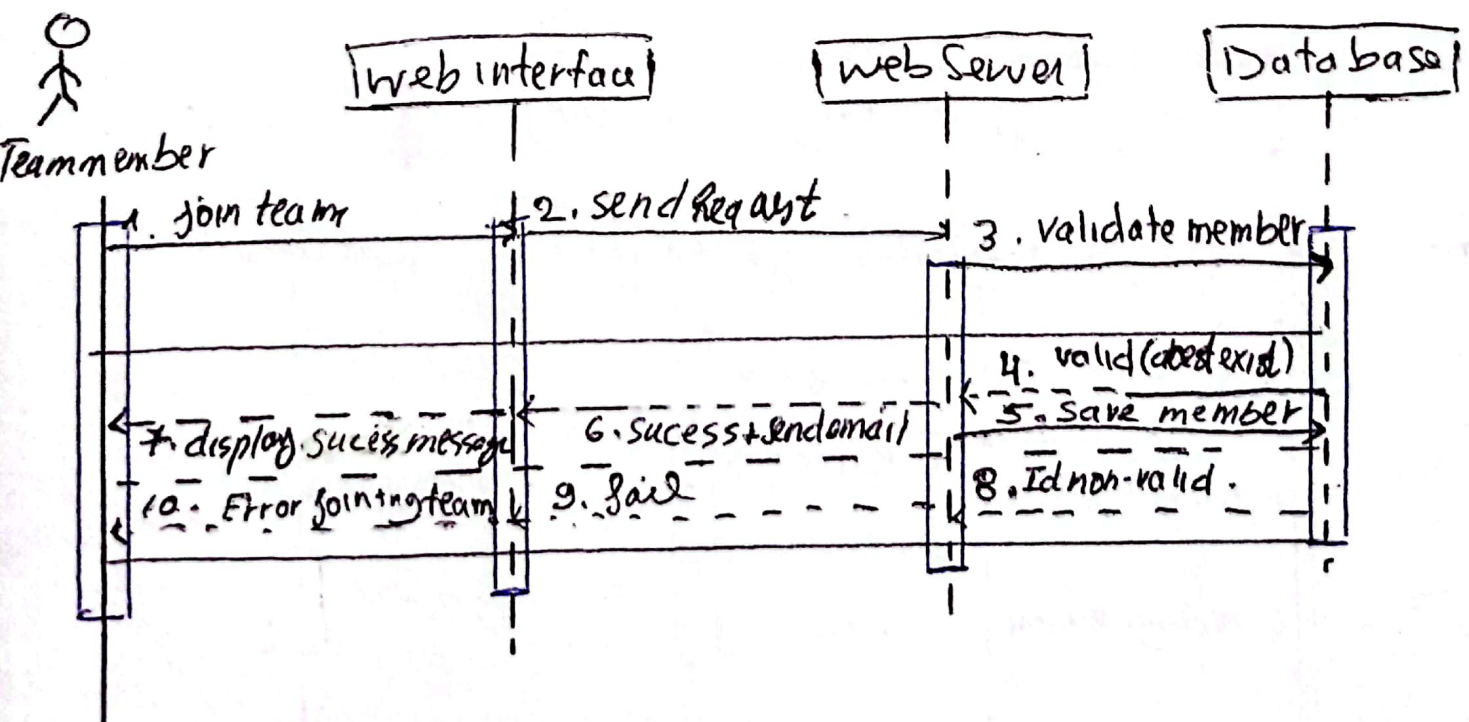 web interface
web Server
Database
Teammember
1. join team
2. send Request
3. validate member
4. valid(
5. save member
6. sucess+sendemail
7. display sucess message
8. Id non-valid.
9. fail
10. Error joining team